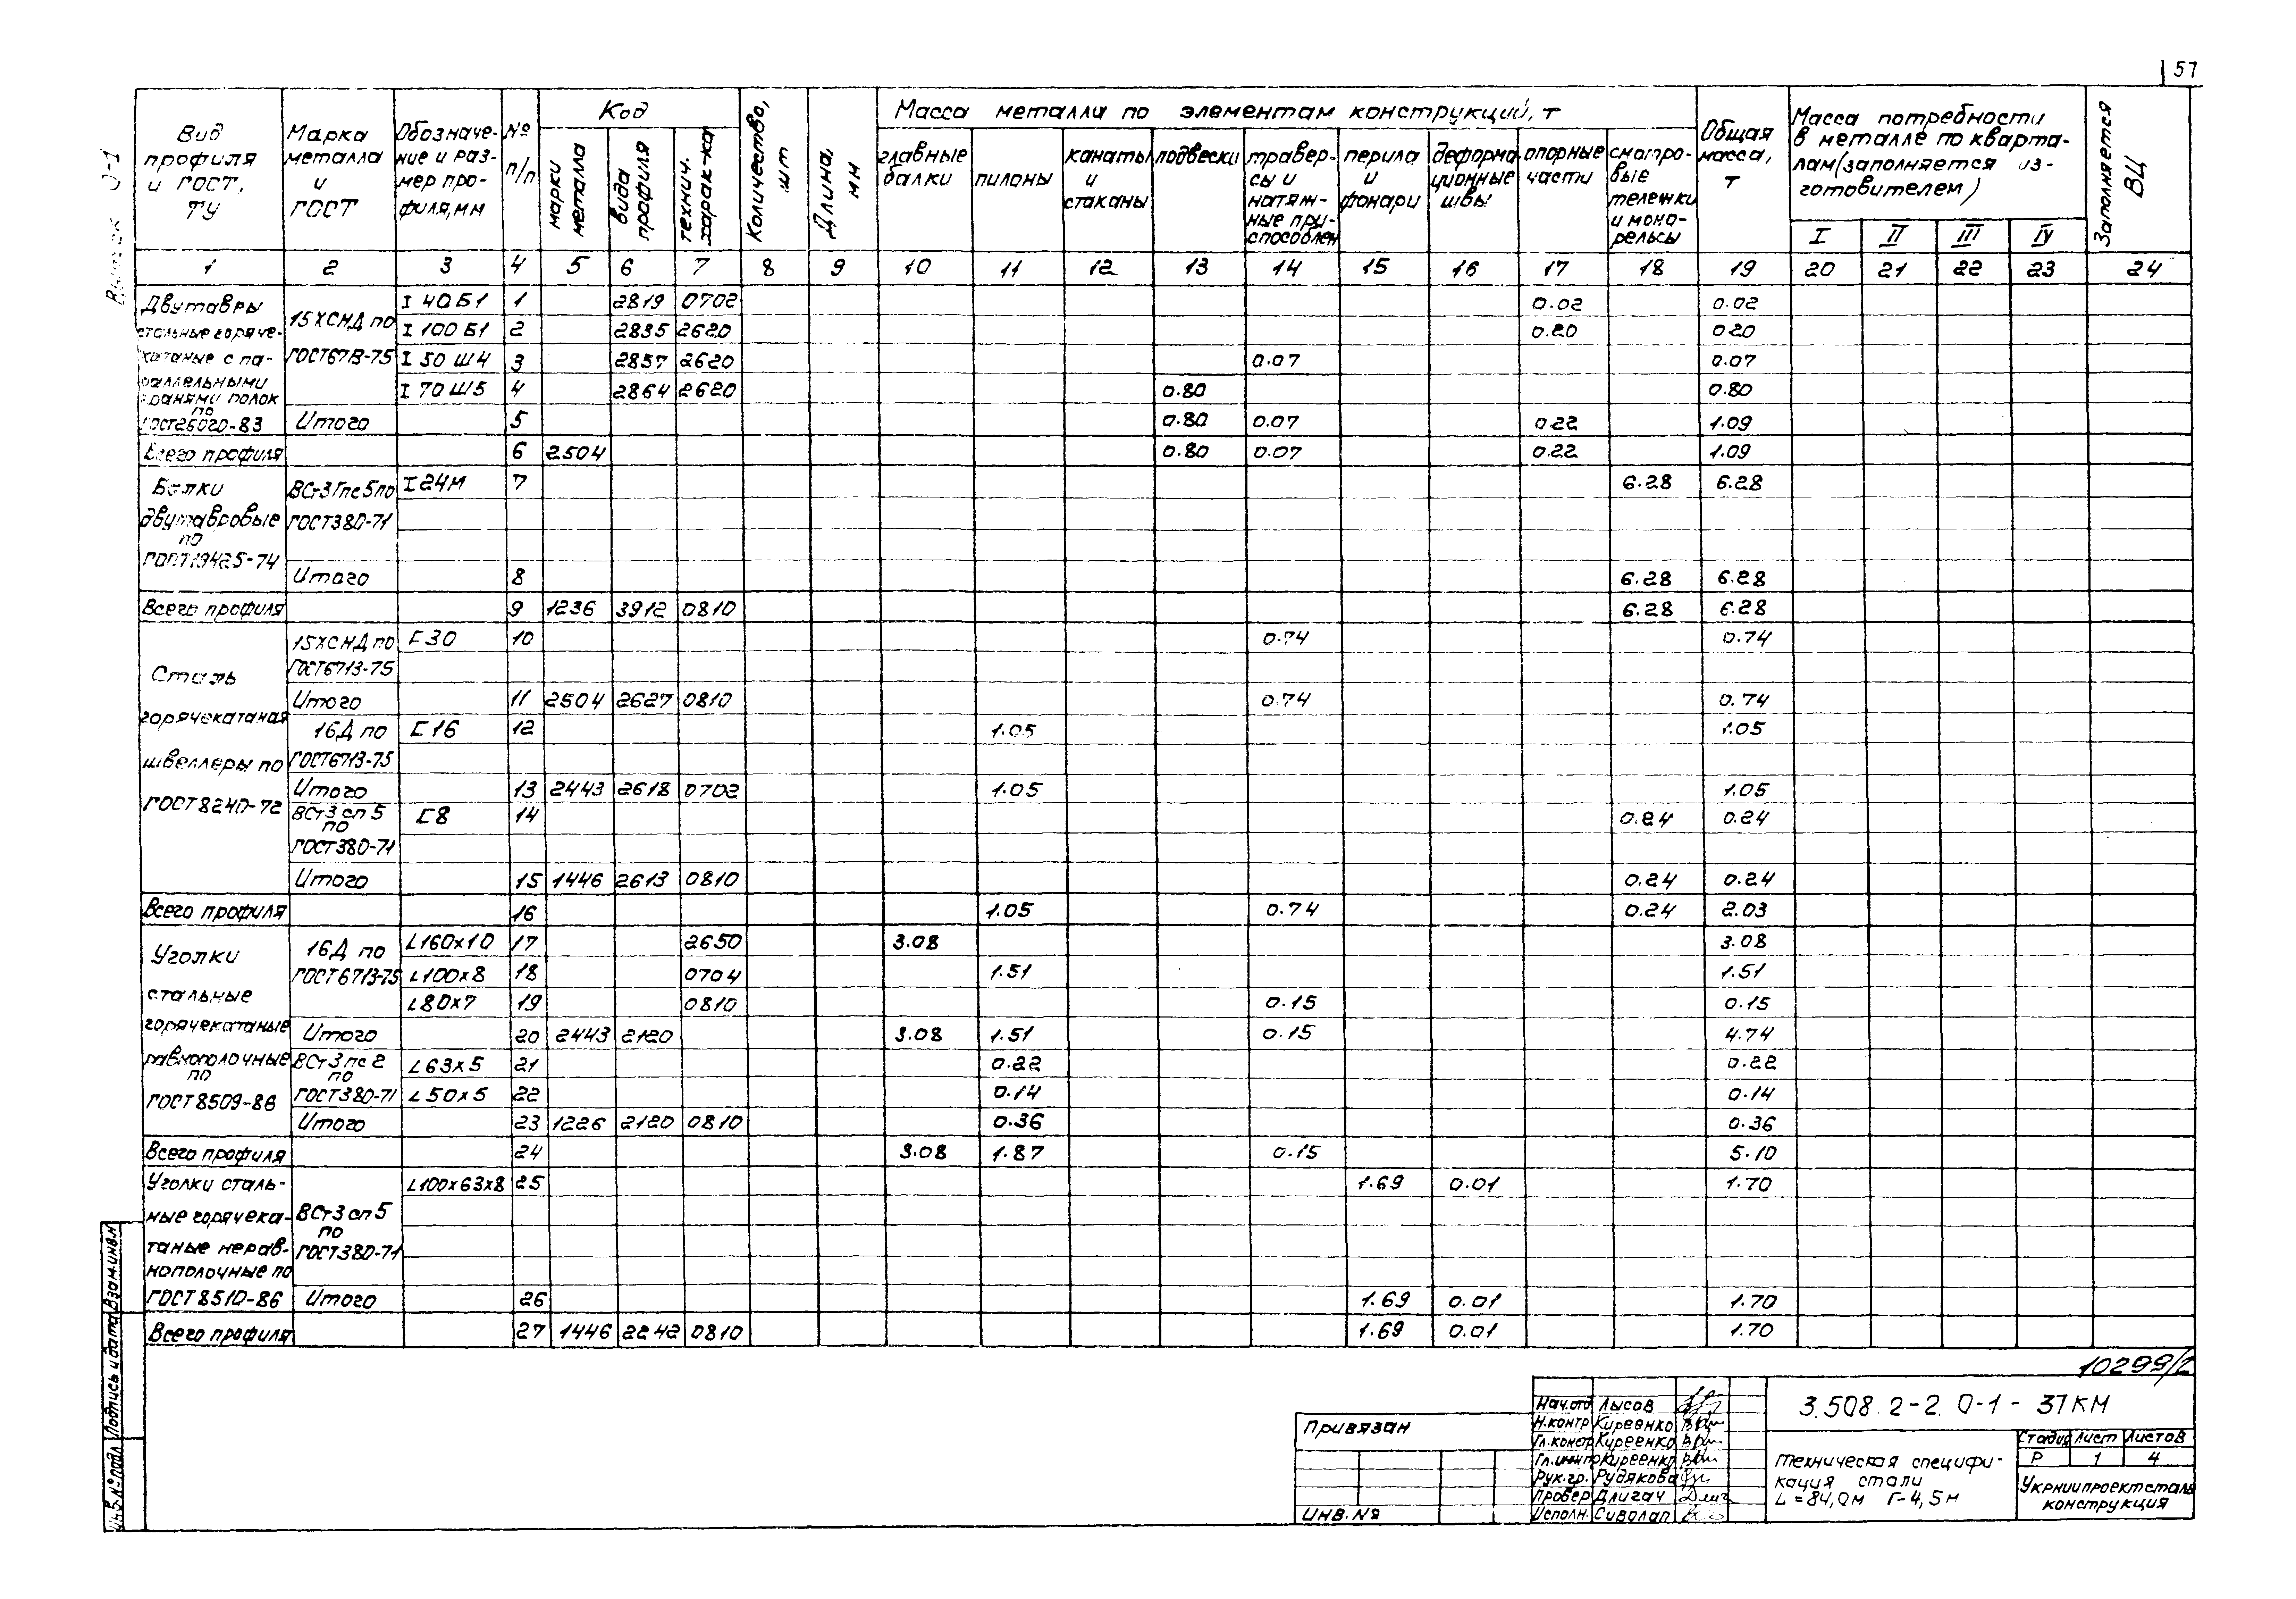 57
Выпуск 0-1
Вид профиля и ГОСТ, ТУ
Марка металла и ГОСТ
Обозначе-ние и раз-мер про-филя, мм
№ п/п
Код
марки металла
вида профиля
технич. харак-ка
Количество, шт
Длина, мм
Масса металла по элементам конструкций, т
главные балки
пилоны
канаты и стаканы
подвески
травер-сы и натяж-ные при-способлен
перила и фонари
деформа-ционные швы
опорные части
смотро-вые тележки и мона-рельсы
Общая масса, т
Масса потребности в металле по кварта-лам (заполняется из-готовителем)
I II III IV
Заполняется ВЦ
1 2 3 4 5 6 7 8 9 10 11 12 13 14 15 16 17 18 19 20 21 22 23 24
Двутавры стальные горяче-катаные с па-раллельными гранями полок по ГОСТ26020-83
15ХСНД по ГОСТ6713-75
I 40Б1 1 2819 0702 0.02 0.02
I 100Б1 2 2835 2620 0.20 0.20
I 50Ш4 3 2857 2620 0.07 0.07
I 70Ш5 4 2864 2620 0.80 0.80
Итого 5 0.80 0.07 0.22 1.09
Всего профиля 6 2504 0.80 0.07 0.22 1.09
Балки двутавровые по ГОСТ19425-74
ВСт3Гпс5 по ГОСТ380-71
I24М 7 6.28 6.28
Итого 8 6.28 6.28
Всего профиля 9 1236 3912 0810 6.28 6.28
Сталь горячекатаная швеллеры по ГОСТ8240-72
15ХСНД по ГОСТ6713-75
[30 10 0.74 0.74
Итого 11 2504 2627 0810 0.74 0.74
16Д по ГОСТ6713-75
[16 12 1.05 1.05
Итого 13 2443 2618 0702 1.05 1.05
ВСт3сп5 по ГОСТ380-71
[8 14 0.24 0.24
Итого 15 1446 2613 0810 0.24 0.24
Всего профиля 16 1.05 0.74 0.24 2.03
Уголки стальные горячекатаные равнополочные по ГОСТ8509-86
16Д по ГОСТ6713-75
L160х10 17 2650 3.08 3.08
L100х8 18 0704 1.51 1.51
L80х7 19 0810 0.15 0.15
Итого 20 2443 2120 3.08 1.51 0.15 4.74
ВСт3пс2 по ГОСТ380-71
L63х5 21 0.22 0.22
L50х5 22 0.14 0.14
Итого 23 1226 2120 0810 0.36 0.36
Всего профиля 24 3.08 1.87 0.15 5.10
Уголки сталь-ные горячека-таные нерав-нополочные по ГОСТ8510-86
ВСт3сп5 по ГОСТ380-71
L100х63х8 25 1.69 0.01 1.70
Итого 26 1.69 0.01 1.70
Всего профиля 27 1446 2242 0810 1.69 0.01 1.70
Взам.инв.№
Подпись и дата
Инв.№ подл
10299/2
Привязан
ИНВ. №
Нач.отд Лысов
Н.контр Киреенко
Гл.констр Киреенко
Гл.инж.пр Киреенко
Рук.гр. Рудякова
Провер Длигач
Исполн. Сиволап
3.508.2-2. 0-1 - 37КМ
Техническая специфи-
кация стали
L=84,0м Г-4,5м
Стадия Лист Листов
Р 1 4
Укрниипроектсталь
конструкция